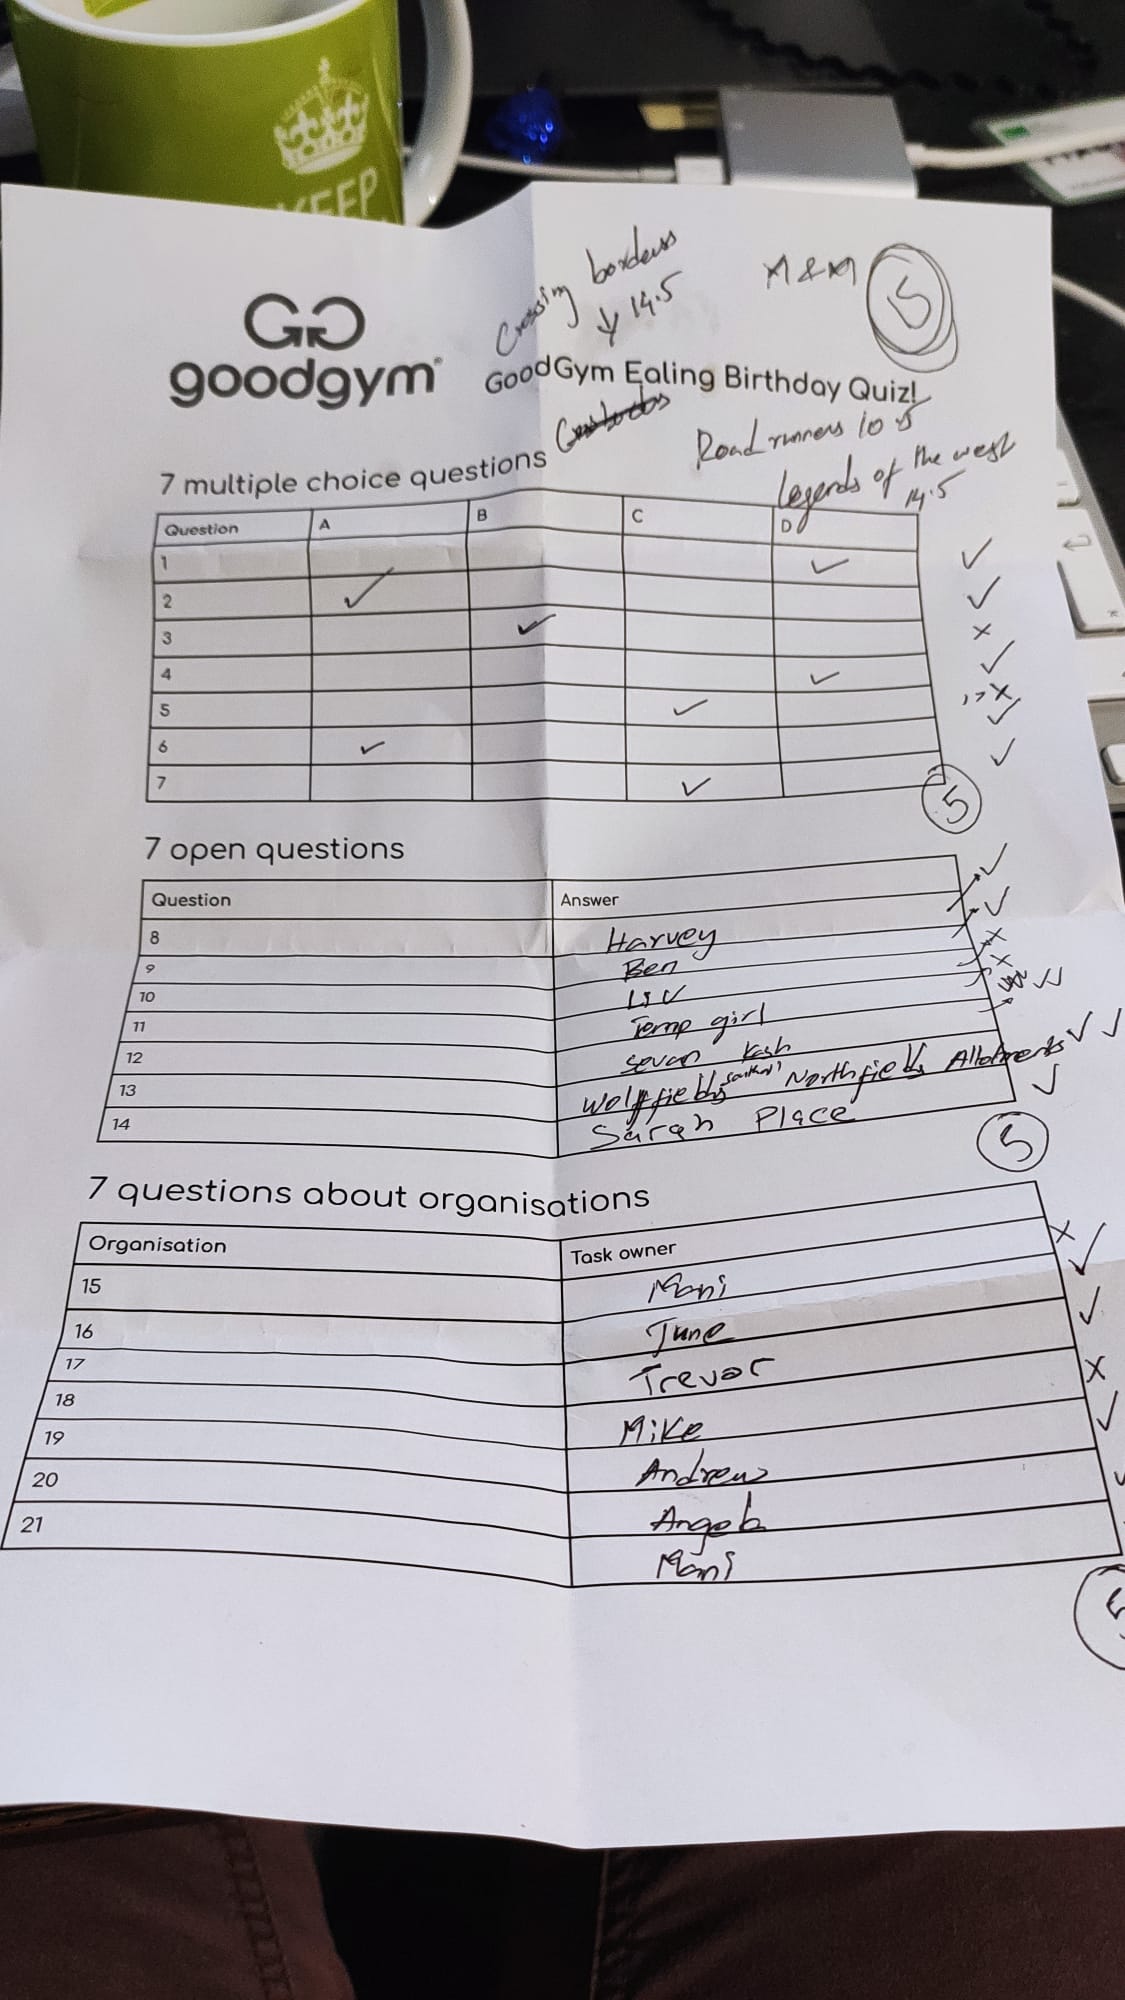 KEEP
Crossing borders
14.5
M & M
15
goodgym
GoodGym Ealing Birthday Quiz!
Road runners 10.5
legends of the west
14.5
7 multiple choice questions
Question A B C D
1
2
3
4
5
6
7
5
7 open questions
Question Answer
8 Harvey
9 Ben
10 Liv
11 Temp girl
12 Sevan Kash
13 Wolf fields Northfields Allotments
14 Sarah Place
5
7 questions about organisations
Organisation Task owner
15 Mani
16 June
17 Trevor
18 Mike
19 Andrew
20 Angela
21 Mani
5